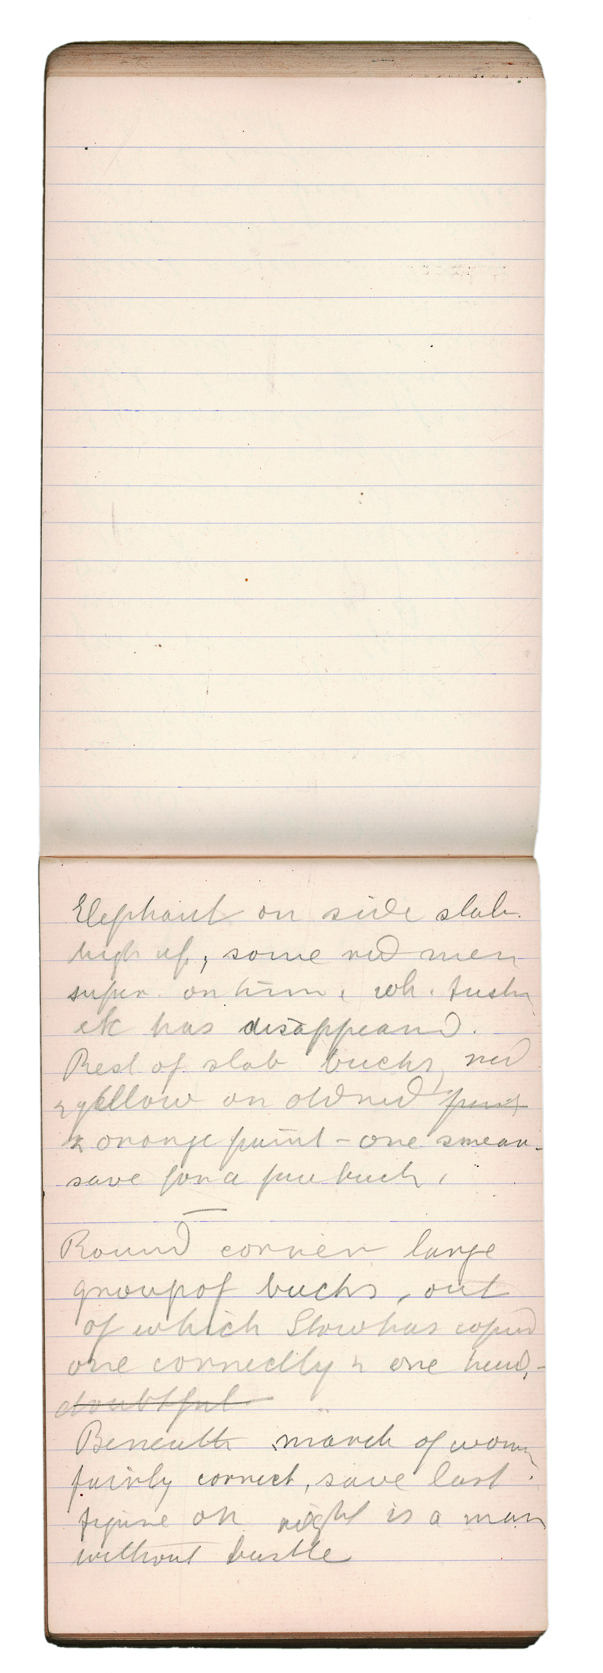 Elephant on side slab.
high up, some red men
super. on him, wh. tusks
etc has disappeard.
Rest of slab bucks, red
& yellow on old red paint
& orange paint - one smear
save for a few bucks,
Round corner large
group of bucks, out
of which Stow has copied
one correctly & one head,
doubtful
Beneath march of women
fairly correct, save last
figure on right is a man
without bustle